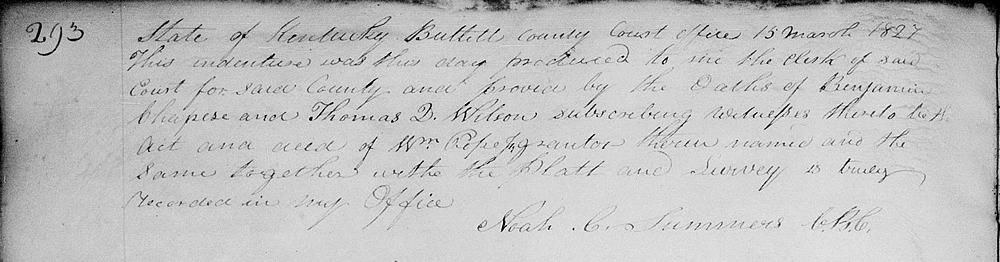 293
State of Kentucky Bullitt County Court office 15 March 1827
This indenture was this day produced to me the Clerk of said
Court for said County and proved by the Oaths of Benjamin
Chapeze and Thomas D. Wilson subscribing witnesses thereto to be the
Act and deed of Wm Pope Jr grantor therein named and the
Same together withe the Platt and Survey is truley
recorded in my Office
Noah C. Summers C.B.C.